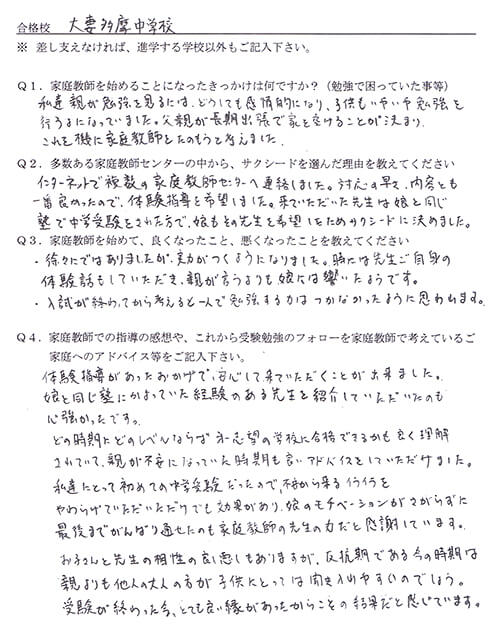 合格校 大妻多摩中学校
※ 差し支えなければ、進学する学校以外もご記入下さい。
Q１．家庭教師を始めることになったきっかけは何ですか？（勉強で困っていた事等）
私達親が勉強を見るには、どうしても感情的になり、子供もいやいや勉強を
行うようになっていました。父親が長期出張で家を空けることが決まり、
これを機に家庭教師をたのもうと考えました。
Q２．多数ある家庭教師センターの中から、サクシードを選んだ理由を教えてください
インターネットで複数の家庭教師センターへ連絡しました。対応の早さ、内容とも
一番良かったので、体験指導を希望しました。来ていただいた先生は娘と同じ
塾で中学受験をされた方で、娘もその先生を希望したためサクシードに決めました。
Q３．家庭教師を始めて、良くなったこと、悪くなったことを教えてください
・徐々にではありましたが、実力がつくようになりました。時には先生ご自身の
体験話もしていただき、親が言うよりも娘には響いたようです。
・入試が終わってから考えると一人で勉強する力はつかなかったように思われます。
Q４．家庭教師での指導の感想や、これから受験勉強のフォローを家庭教師で考えているご
家庭へのアドバイス等をご記入下さい。
体験指導があったおかげで、安心して来ていただくことが出来ました。
娘と同じ塾にかよっていた経験のある先生を紹介していただいたのも
心強かったです。
どの時期にどのレベルならば第一志望の学校に合格できるかも良く理解
されていて、親が不安になっていた時期も良いアドバイスをしていただけました。
私達にとって初めての中学受験だったので、不安から来るイライラを
やわらげていただいただけでも効果があり、娘のモチベーションがさがらずに
最後までがんばり通せたのも家庭教師の先生の力だと感謝しています。
お子さんと先生の相性の良し悪しもありますが、反抗期である今の時期は
親よりも他人の大人の方が子供にとっては聞き入れやすいのでしょう。
受験が終わった今、とても良い縁があったからこその結果だと感じています。